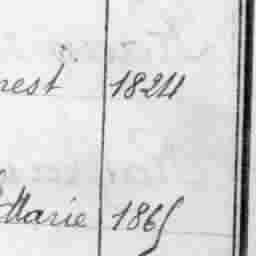 nest 1824
Marie 1865